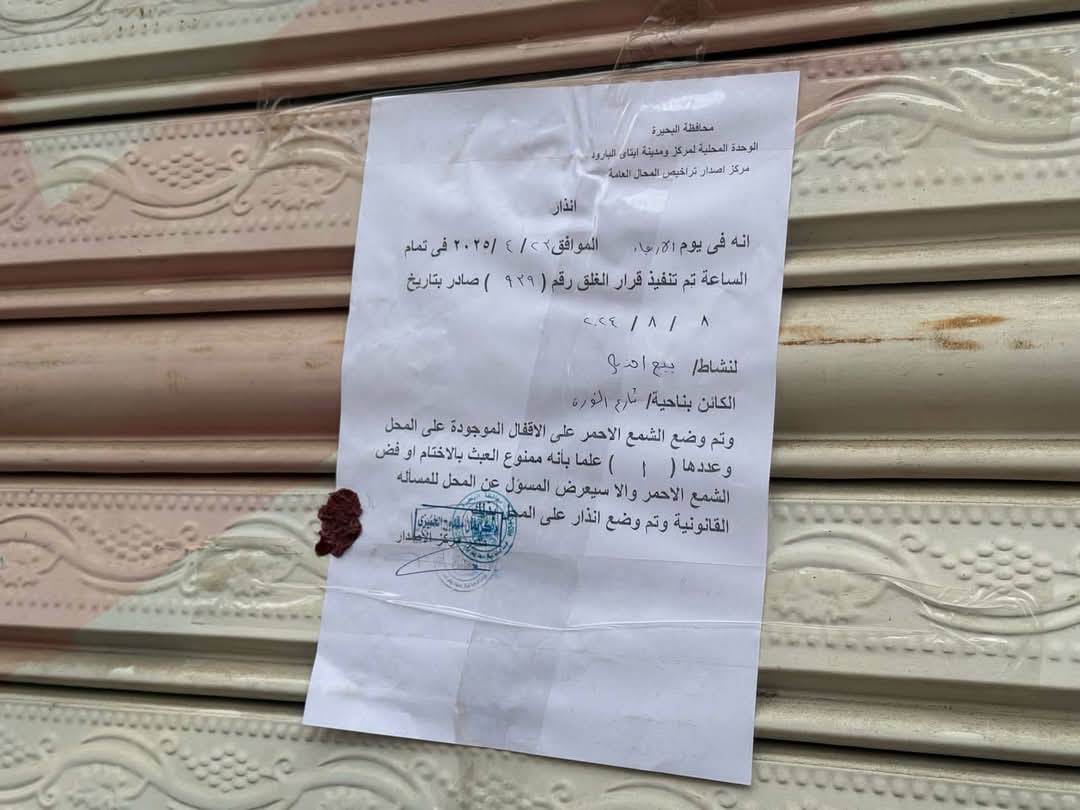 محافظة البحيرة
الوحدة المحلية لمركز ومدينة ايتاى البارود
مركز اصدار تراخيص المحال العامة
انذار
انه فى يوم الاربعاء الموافق ٢٣ / ٤ /٢٠٢٥ فى تمام
الساعة تم تنفيذ قرار الغلق رقم ( ٩٣٩ ) صادر بتاريخ
٨ / ٨ / ٢٠٢٤
لنشاط/ بيع احذية
الكائن بناحية/ شارع الثورة
وتم وضع الشمع الاحمر على الاقفال الموجودة على المحل
وعددها ( ١ ) علما بأنه ممنوع العبث بالاختام او فض
الشمع الاحمر والا سيعرض المسؤل عن المحل للمسأله
القانونية وتم وضع انذار على المحل